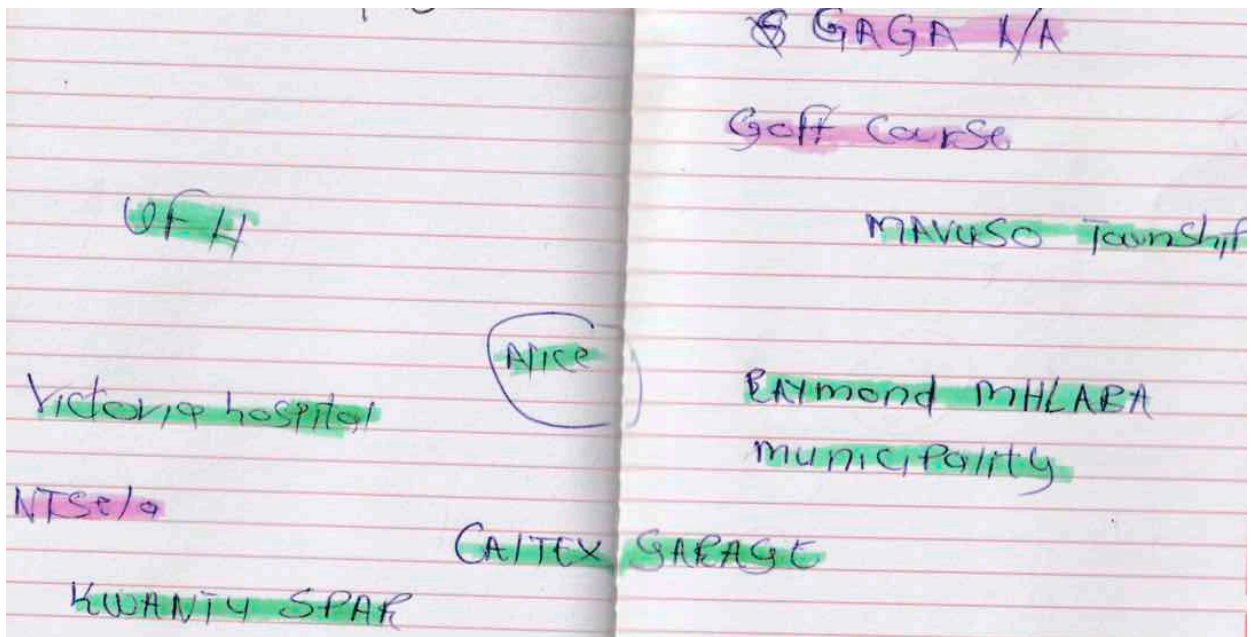 GAGA L/A
Golf Course
UFH
MAVUSO Township
Alice
Victoria hospital
RAYMOND MHLABA
municipality
NTSela
CALTEX GARAGE
KWANTU SPAR